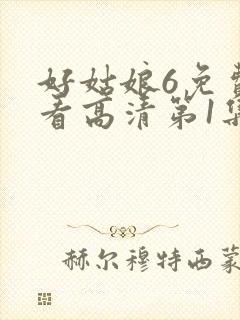 好姑娘6免费
看高清第1集
赫尔穆特西蒙